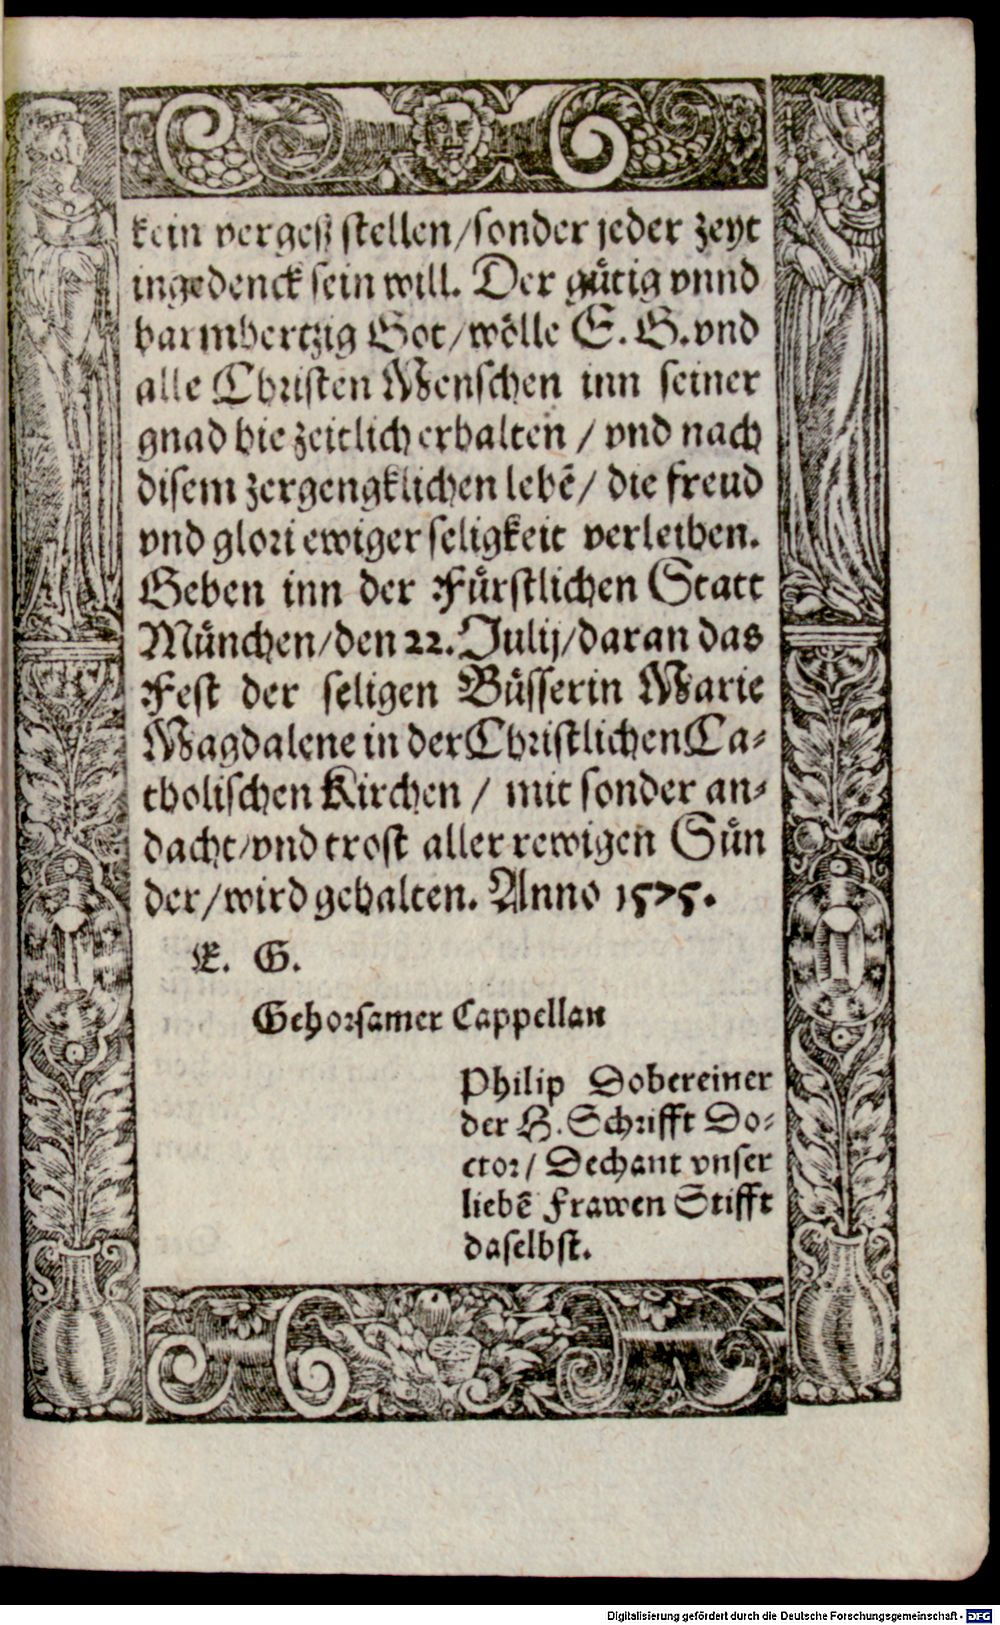 kein vergeß stellen/sonder jeder zeyt
ingedenck sein will. Der gütig vnnd
barmhertzig Got/wölle E. G. vnd
alle Christen Menschen inn seiner
gnad hie zeitlich erhalten / vnd nach
disem zergengklichen lebẽ/ die freud
vnd glori ewiger seligkeit verleihen.
Geben inn der Fürstlichen Statt
München/den 22. Julij/daran das
Fest der seligen Büsserin Marie
Magdalene in der Christlichen Ca⸗
tholischen Kirchen / mit sonder an⸗
dacht/vnd trost aller rewigen Sün
der/wird gehalten. Anno 1575.
E. G.
Gehorsamer Cappellan
Philip Dobereiner
der H. Schrifft Do⸗
ctor/ Dechant vnser
liebẽ Frawen Stifft
daselbst.
Digitalisierung gefördert durch die Deutsche Forschungsgemeinschaft - DFG